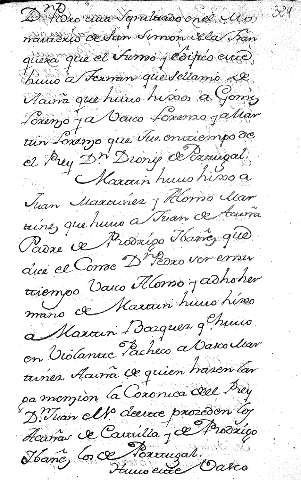 324
Dn Pedro esta sepultado en el Mo
nasterio de San Simon de la Jun
quera que el fundo y edifico este
huuo a Fernan que se llamo de
Acuña que huuo hijos a Gomez
Lorenzo y a Vasco Lorenzo y a Mar
tin Lorenzo que fue en tiempo de
el Rey Dn Dionis de Portugal,
Martin huuo hijos a
Juan Martinez y Alonso Mar
tinez, que huuo a Juan de Acuña
Padre de Rodrigo Ibañez que
dice el Conde Dn Pedro ser en su
tiempo Vasco Alonso y a dho her
mano de Martin huuo hijos
a Martin Bazquez qe huuo
en Violante Pacheco a Vasco Mar
tinez Acuña de quien hasen lar
ga mencion la Coronica del Rey
Dn Juan el 1o de este proceden los
Acuñas de Castilla y de Rodrigo
Ibañez los de Portugal.
Huuo este Vasco